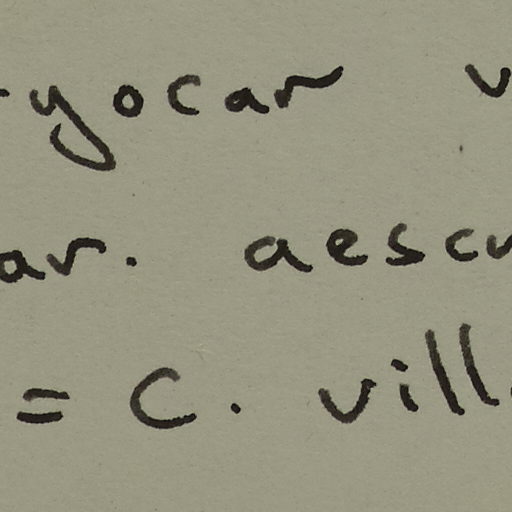 ryocar v
ar. aescu
= C. vill.